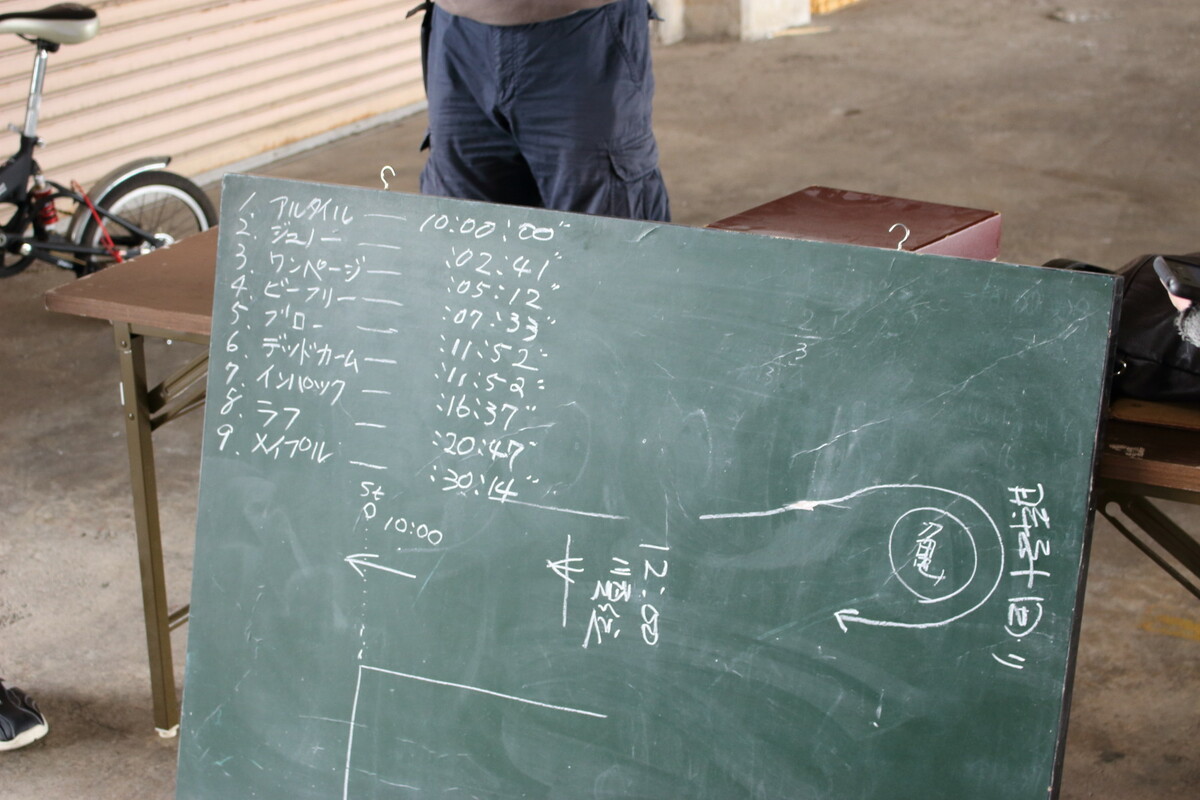 1. アルタイル — 10:00:00"
2. ジュノー — :02:41"
3. ワンページ — :05:12"
4. ビーフリー — :07:33"
5. ブロー — :11:52"
6. デッドカーム — :11:52"
7. インパック — :16:37"
8. ラフ — :20:47"
9. メイプル — :30:14"
2
3
St
10:00
12:00
亀
時計回り